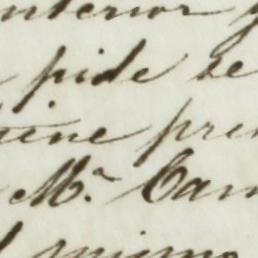 nterior
pide se
tine pre
Mr. Cam
mismo